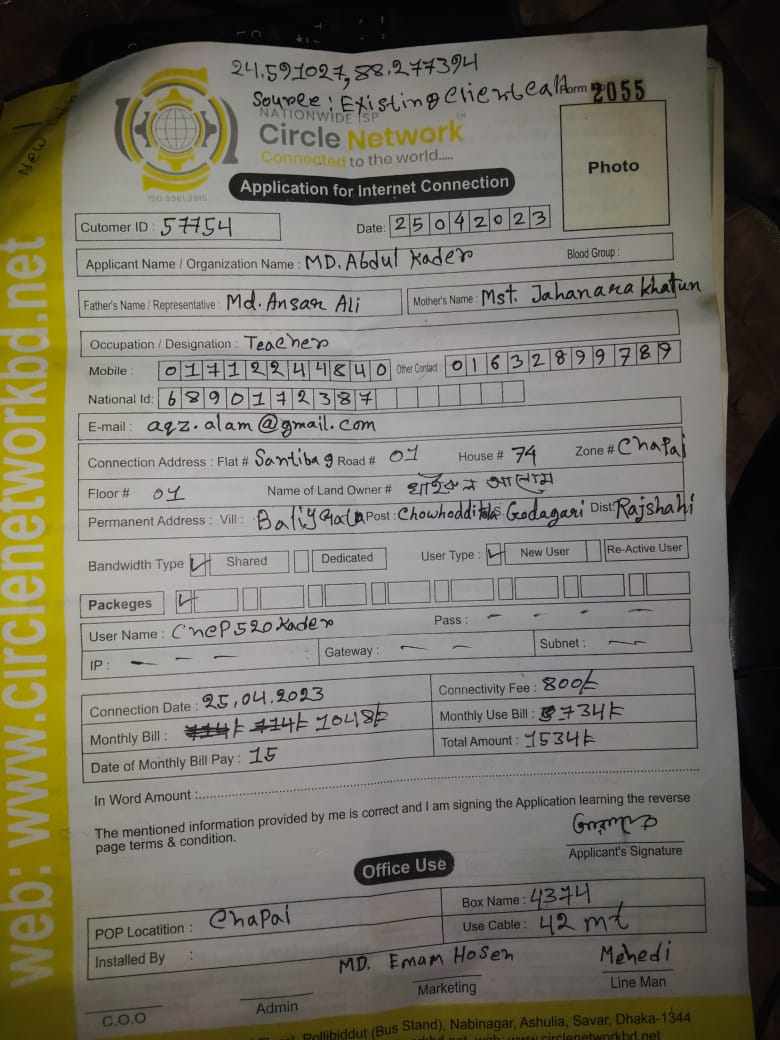 24.591027, 88.277394
Source: Existing Client Call Form No 2055
NATIONWIDE ISP
Circle Network
Connected to the world.....
ISO 9001:2015
Photo
Application for Internet Connection
Cutomer ID : 57754 Date: 25042023
Applicant Name / Organization Name : MD. Abdul Kader Blood Group :
Father's Name / Representative : Md. Ansar Ali Mother's Name : Mst. Jahanara Khatun
Occupation / Designation : Teacher
Mobile : 01712244840 Other Contact : 01632899789
National Id: 6890172387
E-mail : aqz.alam@gmail.com
Connection Address : Flat # Santibag Road # 01 House # 74 Zone # Chapai
Floor # 01 Name of Land Owner # আলম
Permanent Address : Vill : Post : Godagari Dist: Rajshahi
Bandwidth Type ✓ Shared Dedicated User Type : ✓ New User Re-Active User
Packeges ✓
User Name : CNCP520Kader Pass : - - - -
IP : - - - Gateway : - - Subnet : -
Connection Date : 25.04.2023 Connectivity Fee : 800/-
Monthly Bill : 1048/- Monthly Use Bill : 734/-
Date of Monthly Bill Pay : 15 Total Amount : 1534/-
In Word Amount :
The mentioned information provided by me is correct and I am signing the Application learning the reverse
page terms & condition.
Applicant's Signature
Office Use
POP Locatition : Chapai Box Name : 4374
Installed By : Use Cable : 42 mt
MD. Emam Hosen Mehedi
C.O.O Admin Marketing Line Man
Pollibiddut (Bus Stand), Nabinagar, Ashulia, Savar, Dhaka-1344
web: www.circlenetworkbd.net
web: www.circlenetworkbd.net
New